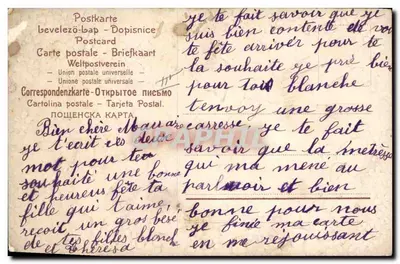 Postkarte
Levelező-Lap - Dopisnice
Postcard
Carte postale - Briefkaart
Weltpostverein
- Union postale universelle -
- Unione postale universale -
Correspondenzkarte - Открытое письмо
Cartolina postale - Tarjeta Postal.
ПОЩЕНСКА КАРТА
Bien chère
ye t'écit ces deux
mot pour te
souhaité une bonne
et heureus fête ta
fille qui t'aime,
recoit un gros bésé
de tes filles blanche
et Thérèsa
ye te fait savoir que ye
suis bien contente de voir
ta fête arriver pour te
la souhaite ye pri bien
pour toi blanche
t'envoy une grosse
caresse, ye te fait
savoir que la metrèsse
qui ma mené au
parlwoir et bien
bonne pour nous
ye finie ma carte
en me rejouissant